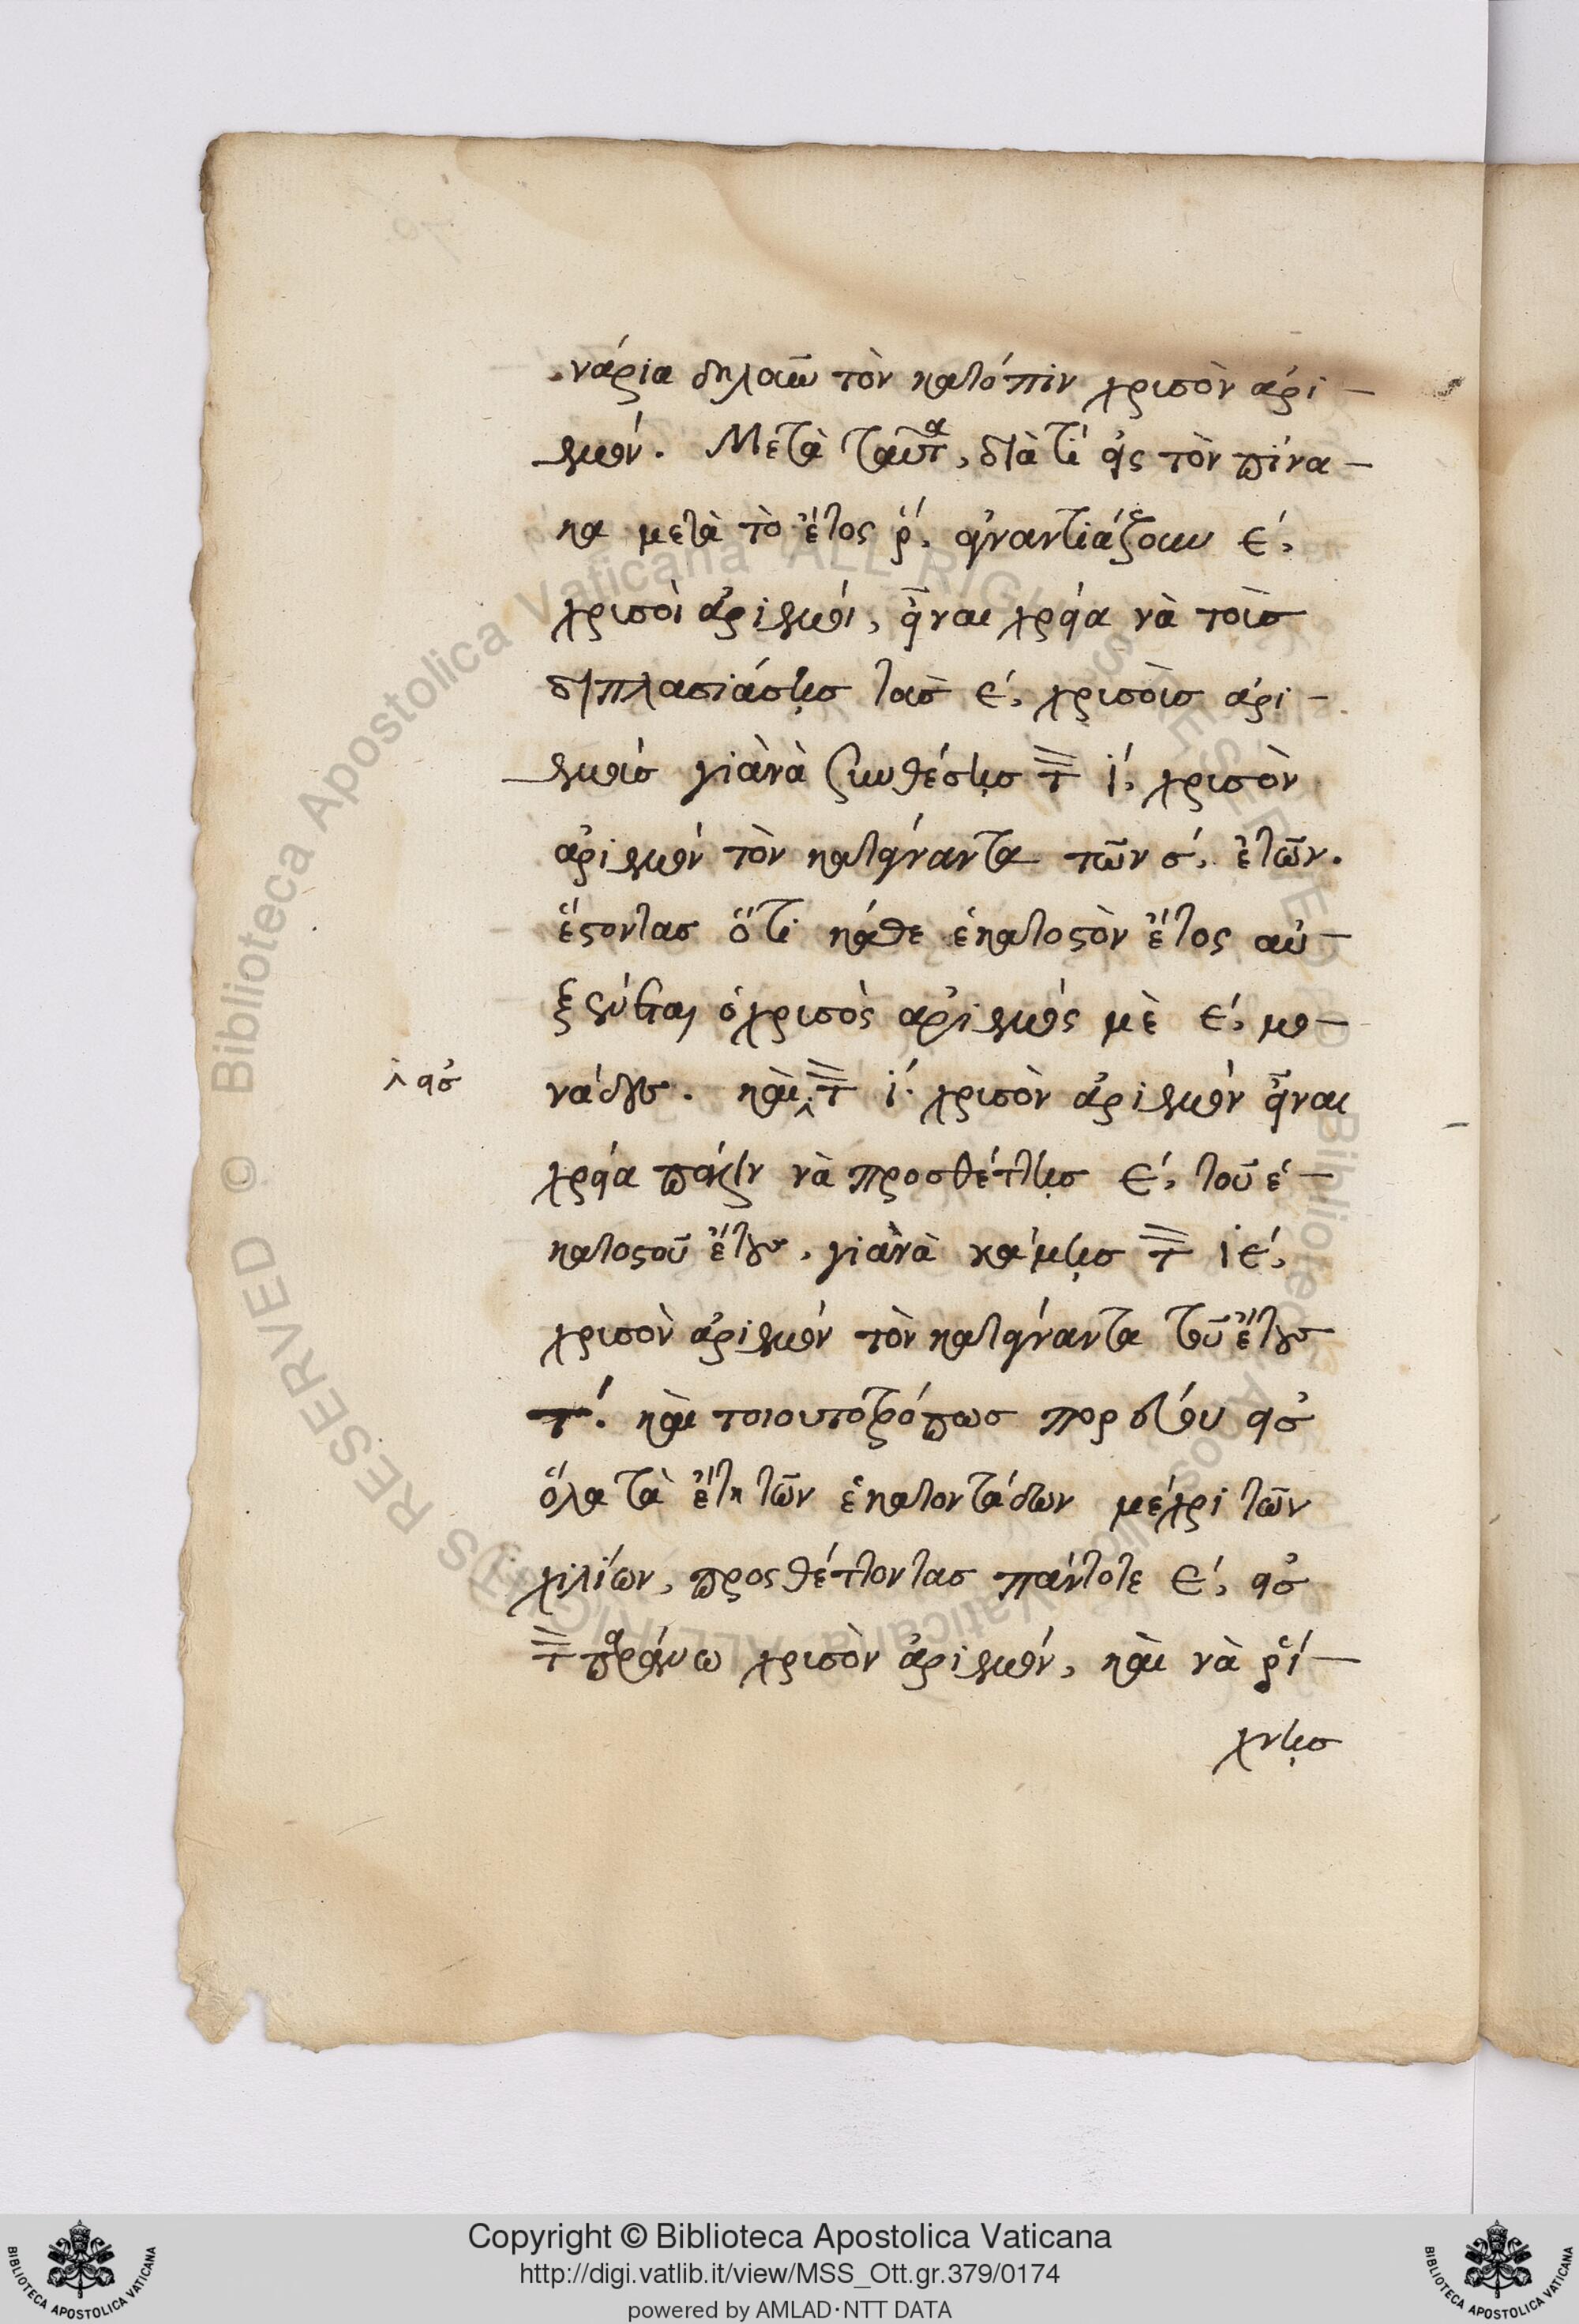 νάρια δηλοῦν τὸν κατόπιν χρισὸν ἀρι-
θμόν. Μετὰ ταῦτα, διὰ τὶ εἰς τὸν πίνα-
κα μετὰ τὸ ἔτος ρ΄, ἐναντιάζουν ε΄,
χρισοὶ ἀριθμοὶ, εἶναι χρεία νὰ τοὶς
διπλασιάσῃς τοὺς ε΄, χρισοὶς ἀρι-
θμοὶς γιὰ νὰ συνθέσῃς τὸν ι΄, χρισὸν
ἀριθμὸν τὸν κατέναντα τῶν σ΄, ἐτῶν.
ἔστοντας ὅτι κάθε ἑκατοστὸν ἔτος αὐ-
ξεύεται ὁ χρισὸς ἀριθμὸς μὲ ε΄, μο-
^ εἰς
νάδες. καὶ ^ τὸν ι΄. χρισὸν ἀριθμὸν εἶναι
χρεία πάλιν νὰ προσθέτῃς ε΄, τοῦ ἑ-
κατοστοῦ ἔτους, γιὰ νὰ κάμῃς τὸν ιε΄,
χρισὸν ἀριθμὸν τὸν κατέναντα τοῦ ἔτους
τ΄. καὶ τοιουτοτρόπως πορεύου εἰς
ὅλα τὰ ἔτη τῶν ἑκατοντάδων μέχρι τῶν
χιλίων, προσθέτοντας πάντοτε ε΄, εἰς
τὸν παράνω χρισὸν ἀριθμὸν, καὶ νὰ ῥί-
χνῃς
Copyright © Biblioteca Apostolica Vaticana
http://digi.vatlib.it/view/MSS_Ott.gr.379/0174
powered by AMLAD·NTT DATA
BIBLIOTECA APOSTOLICA VATICANA
BIBLIOTECA APOSTOLICA VATICANA